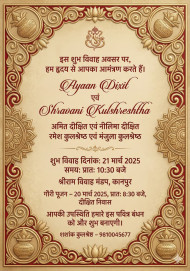 इस शुभ विवाह अवसर पर,
हम हृदय से आपका आमंत्रण करते हैं।
Ayaan Dixit
एवं
Shravani Kulshreshtha
अमित दीक्षित एवं नीलिमा दीक्षित
रमेश कुलश्रेष्ठ एवं मंजुला कुलश्रेष्ठ
शुभ विवाह दिनांक: 21 मार्च 2025
समय: प्रातः 10:30 बजे
श्रीराम विवाह मंडप, कानपुर
गौरी पूजन – 20 मार्च 2025, प्रातः 8:30 बजे,
दीक्षित निवास
आपकी उपस्थिति हमारे इस पवित्र बंधन
को और शुभ बनाएगी।
शशांक कुलश्रेष्ठ – 9810045677